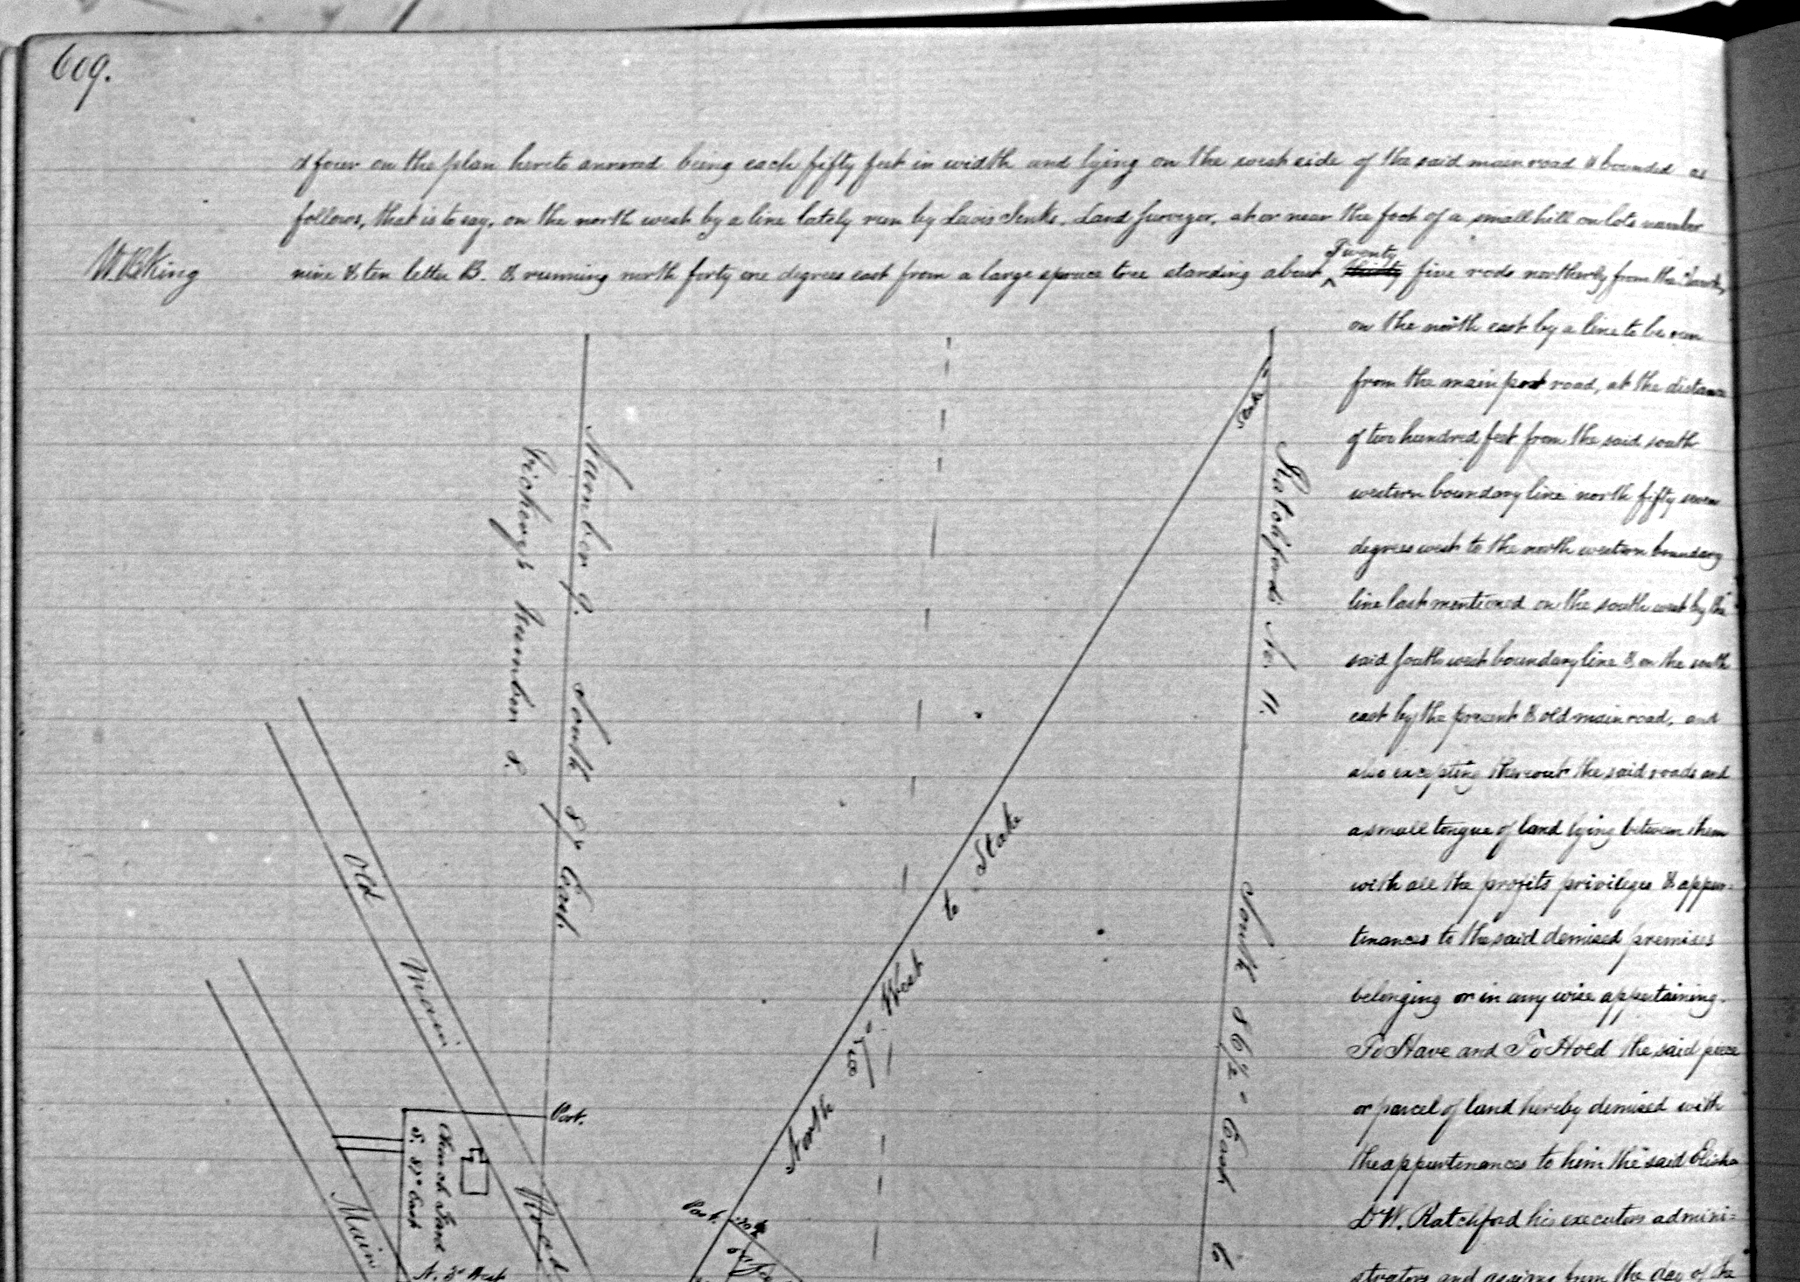 609.
& four on the plan hereto annexed being each fifty feet in width and lying on the west side of the said main road & bounded as
follows, that is to say, on the north west by a line lately run by Lewis Jenks, Land Surveyor, at or near the foot of a small hill on lots number
W. B. King
nine & ten letter B. & running north forty one degrees east from a large spruce tree standing about Twenty thirty five rods northerly from the
on the north east by a line to be run
from the main post road, at the distance
of two hundred feet from the said south
western boundary line north fifty seven
degrees west to the north western boundary
line last mentioned on the south west by the
said south west boundary line & on the south
east by the present & old main road, and
also excepting thereout the said roads and
a small tongue of land lying between them
with all the profits privileges & appur=
tenances to the said demised premises
belonging or in any wise appertaining.
To Have and To Hold the said piece
or parcel of land hereby demised with
the appurtenances to him the said Elisha
D. W. Ratchford his executors admini=
strators and assigns from the day of the
Number 9. South 87° East.
Vickery's Number 8.
Ratchford's No. 11. South 86½° East to
Stake
North West to Stake
Old Main Road
Main
Post.
Church Land
S. 87° East
N. 3° West
Post.